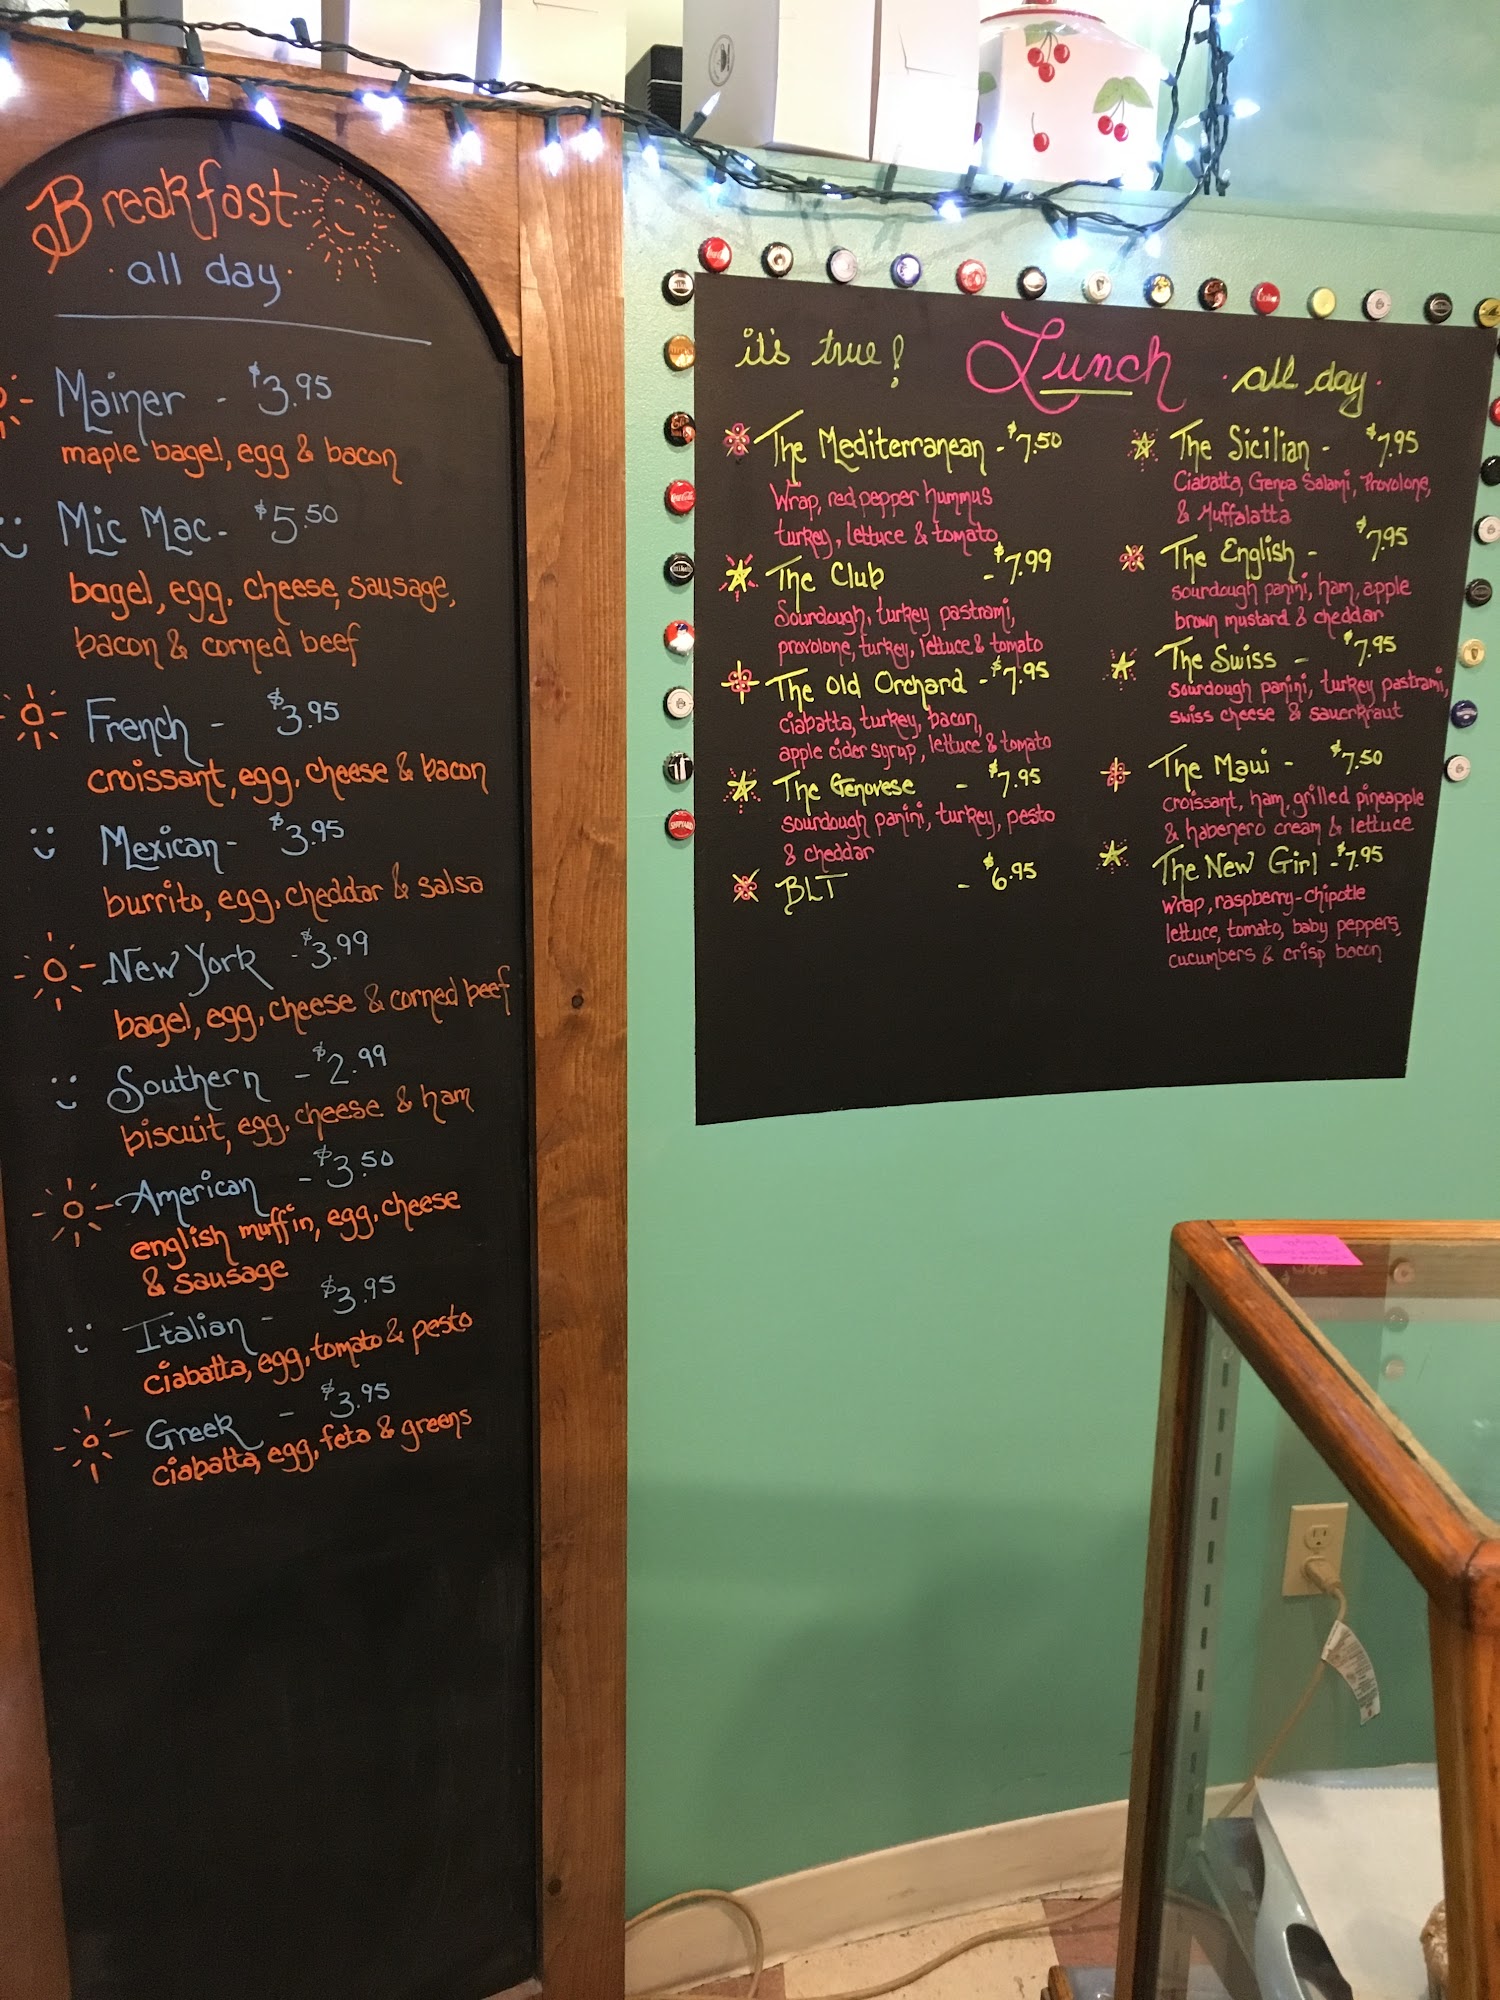 Breakfast
all day
Mainer - $3.95
maple bagel, egg & bacon
Mic Mac - $5.50
bagel, egg, cheese, sausage,
bacon & corned beef
French - $3.95
croissant, egg, cheese & bacon
Mexican - $3.95
burrito, egg, cheddar & salsa
New York - $3.99
bagel, egg, cheese & corned beef
Southern - $2.99
biscuit, egg, cheese & ham
American - $3.50
english muffin, egg, cheese
& sausage
Italian - $3.95
ciabatta, egg, tomato & pesto
Greek - $3.95
ciabatta, egg, feta & greens
it's true! Lunch all day
The Mediterranean - $7.50
Wrap, red pepper hummus
turkey, lettuce & tomato
The Club - $7.99
Sourdough, turkey pastrami,
provolone, turkey, lettuce & tomato
The Old Orchard - $7.95
ciabatta, turkey, bacon,
apple cider syrup, lettuce & tomato
The Genovese - $7.95
sourdough panini, turkey, pesto
& cheddar
BLT - $6.95
The Sicilian - $7.95
Ciabatta, Genoa Salami, Provolone,
& Muffalatta
The English - $7.95
sourdough panini, ham, apple
brown mustard & cheddar
The Swiss - $7.95
sourdough panini, turkey pastrami,
swiss cheese & sauerkraut
The Maui - $7.50
croissant, ham, grilled pineapple
& habenero cream & lettuce
The New Girl - $7.95
wrap, raspberry-chipotle
lettuce, tomato, baby peppers,
cucumbers & crisp bacon